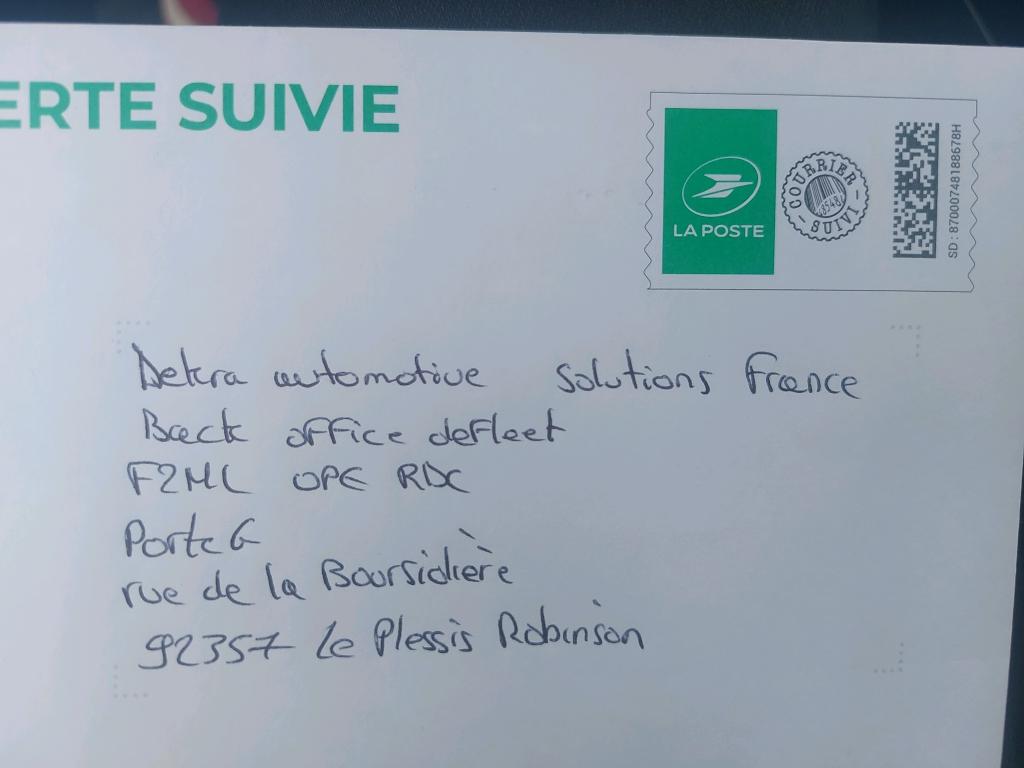 ERTE SUIVIE
LA POSTE
COURRIER SUIVI
8548
SD : 87000748188678H
Dekra automotive solutions France
Back office defleet
F2ML OPE RDC
Porte G
rue de la Boursidière
92357 Le Plessis Robinson